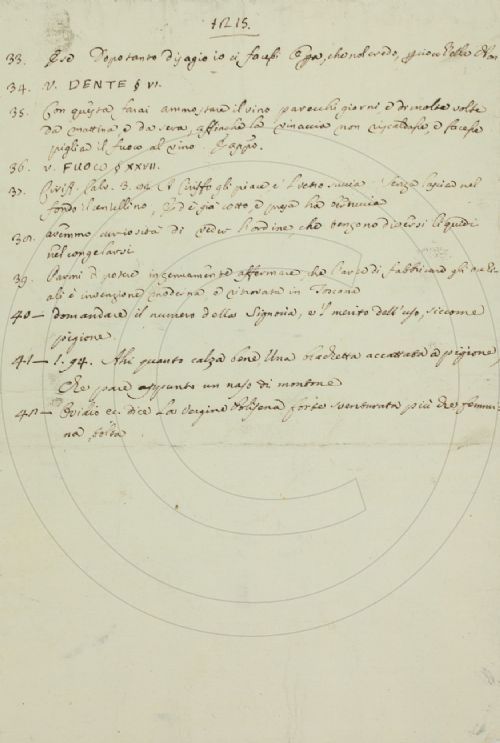 1215.
33. E se Dopo tanto disagio io ci facessi che nol credo,
34. V. DENTE § VI.
35. Con questa farai ammostare il vino parecchi giorni, e di molte volte
da mattina e da sera, affinché la vinaccia non riscaldasse, e facesse
pigliar il fuoco al vino.
36. V. FUOCO § XXVII.
37. Ciriff. Calv. 3. gli piace è Senza lasciar nel
fondo è già cotto, e presa ha
38. avemmo curiosità di veder l'ordine, che tengono diversi liquidi
nel congelarsi
39. Parmi di potere ingenuamente affermare, che l'arte di fabbricare gli occhi-
ali è invenzione moderna, e ritrovata in Toscana
40 — domandare il numero della Signoria, e 'l merito dell'uso, siccome
pigione.
41 — 1. 94. Ahi quanto calza bene Una bracchetta accattata a pigione,
Che pare appunto un naso di montone
42 — Ovidio ec. dice La Vergine Polisena forte e sventurata più che femmi-
na,